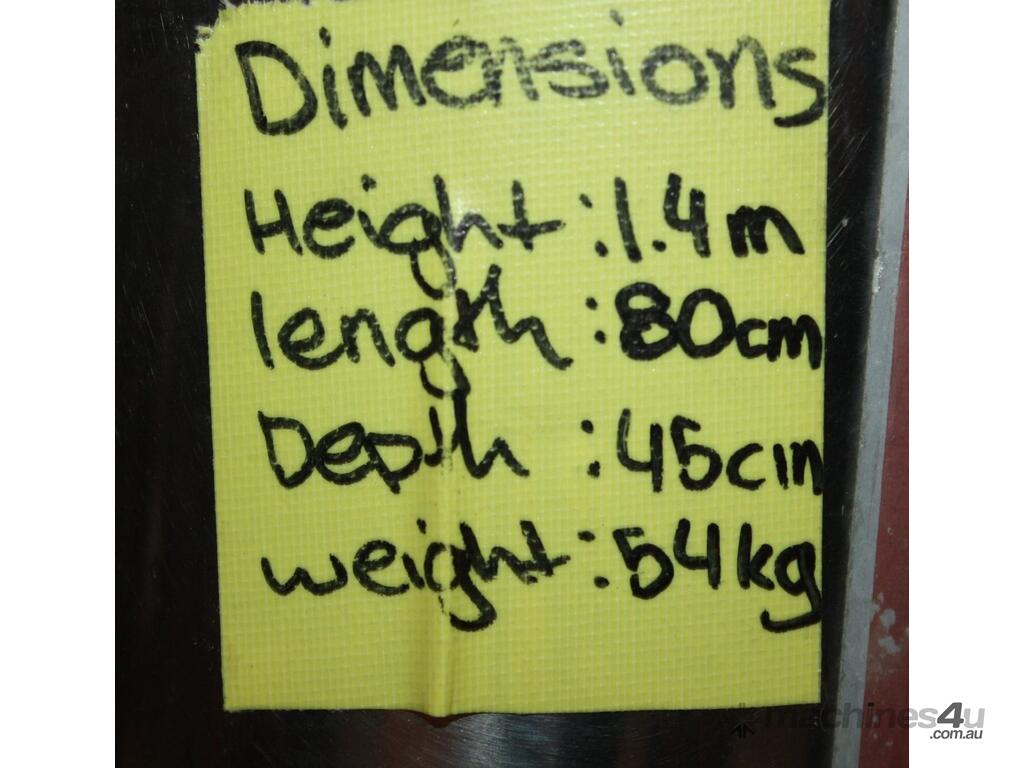 Dimensions
Height :1.4m
length :80cm
Depth :45cm
weight :54kg
machines4u
.com.au